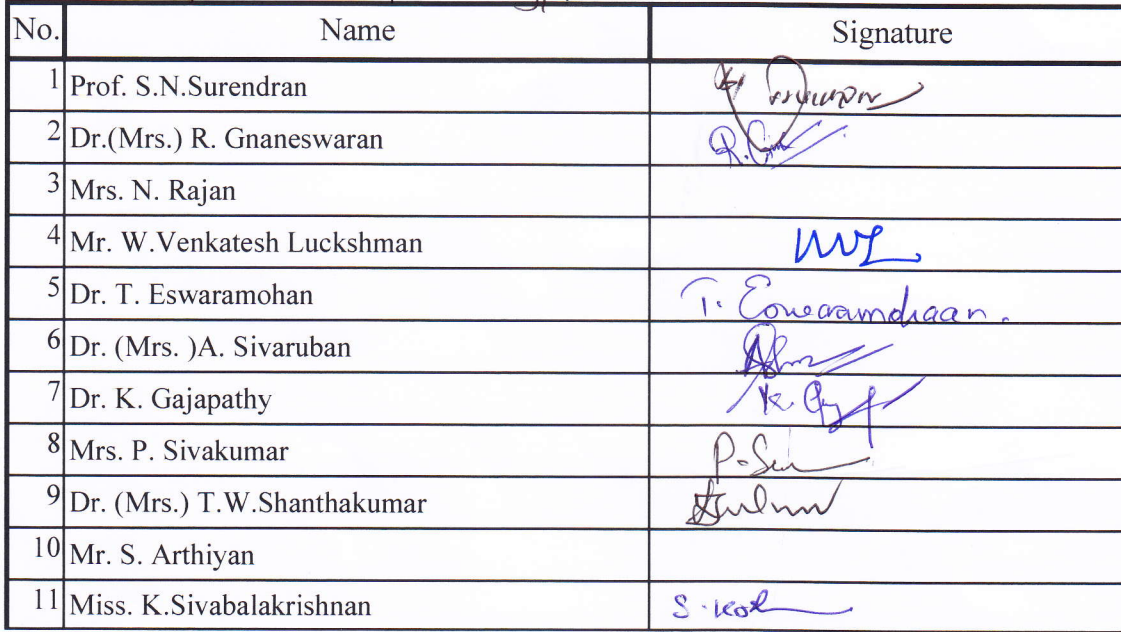 No. Name Signature
1 Prof. S.N.Surendran
2 Dr.(Mrs.) R. Gnaneswaran
3 Mrs. N. Rajan
4 Mr. W.Venkatesh Luckshman
5 Dr. T. Eswaramohan T.
6 Dr. (Mrs. )A. Sivaruban
7 Dr. K. Gajapathy
8 Mrs. P. Sivakumar
9 Dr. (Mrs.) T.W.Shanthakumar
10 Mr. S. Arthiyan
11 Miss. K.Sivabalakrishnan